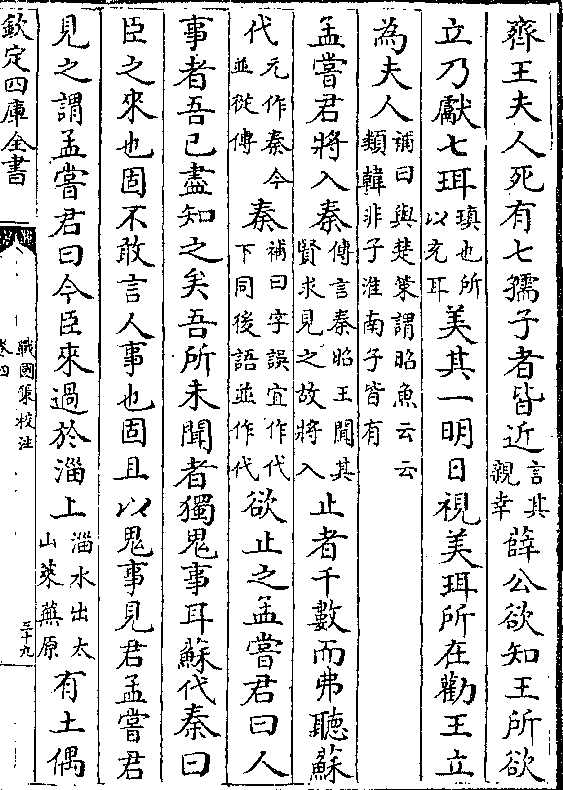 齊王夫人死有七孺子者皆近言其親幸薛公欲知王所欲
立乃獻七珥瑱也所以充耳美其一明日視美珥所在勸王立
為夫人補曰與楚策謂昭魚云云類韓非子淮南子皆有
孟嘗君將入秦傳言秦昭王聞其賢求見之故將入止者千數而弗聽蘇
代元作秦今並從傳秦補曰字誤宜作代下同後語並作代欲止之孟嘗君曰人
事者吾已盡知之矣吾所未聞者獨鬼事耳蘇代秦曰
臣之來也固不敢言人事也固且以鬼事見君孟嘗君
見之謂孟嘗君曰今臣來過於淄上淄水出太山萊蕪原有土偶
欽定四庫全書
戰國策校注
卷四
三十九